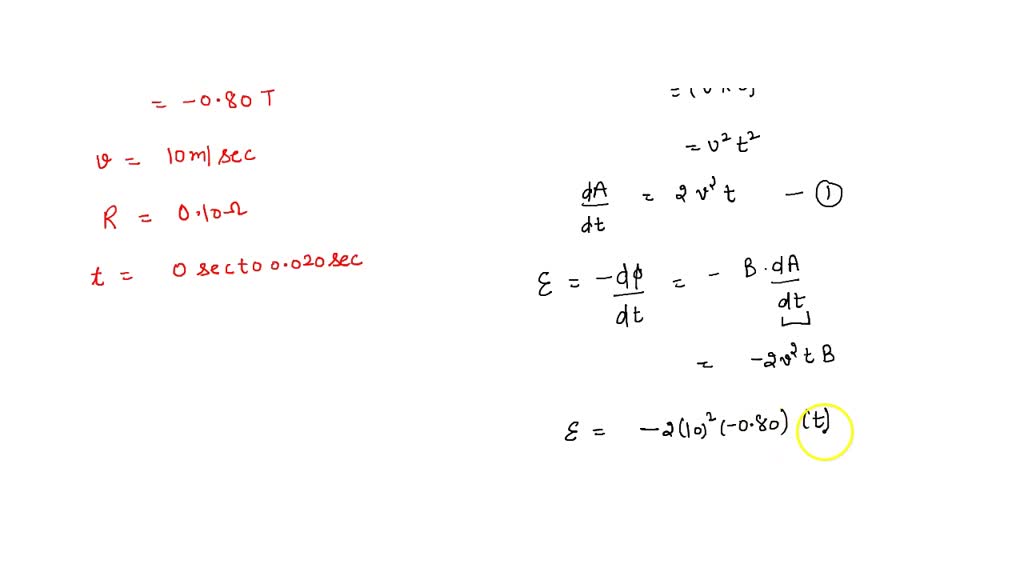 = -0.80 T
v = 10m/sec
R = 0.10Ω
t = 0 sec to 0.020 sec
= v² t²
dA/dt = 2v² t - ①
ε = -dφ/dt = - B.dA/dt
= -2v² t B
ε = -2(10)² (-0.80) (t)